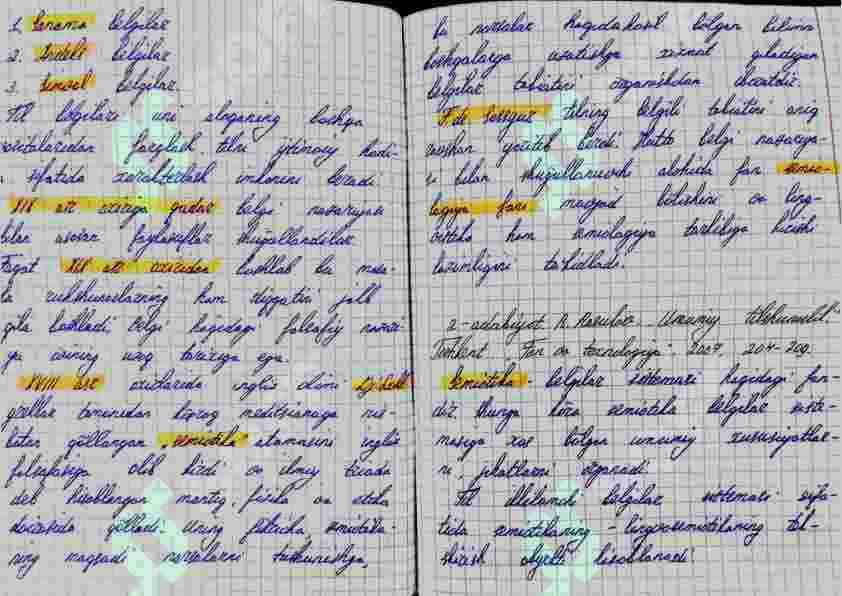 1. Ikonama belgilar
2. Indeks belgilar
3. Simvol belgilar.
Til belgilari uni aloqaning boshqa
vositalaridan farqlash, tilni ijtimoiy hodi-
sifatida xarakterlash imkonini beradi
XIX asr oxiriga qadar belgi nazariyasi
bilan asosan faylasuflar shug'ullandilar.
Faqat XIX asr oxiridan boshlab bu masa-
la tilshunoslarning ham diqqatini jalb
qila boshladi, belgi haqidagi falsafiy nazari-
ya o'zining uzoq tarixiga ega.
XVIII asr oxirlarida ingliz olimi Dj. Lokk
yunonlar tomonidan ko'proq meditsinaga nis-
batan qo'llangan "semiotika" atamasini ingliz
falsafasiga olib kirdi va ilmiy triada
deb hisoblangan mantiq, fizika va etika
doirasida qo'lladi. Uning fikricha, semiotika-
ning maqsadi narsalarni tushunishga,
bu narsalar haqida hosil bo'lgan bilimni
boshqalarga uzatishga xizmat qiladigan
belgilar tabiatini o'rganishdan iboratdir.
F. de Sossyur tilning belgili tabiatini aniq
ravshan yoritib berdi. Hatto belgi nazariya-
si bilan shug'ullanuvchi alohida fan semio-
logiya fani mavjud bo'lishini va ling-
vistika ham semiologiya tarkibiga kirishi
lozimligini ta'kidladi.
2-adabiyot. R. Rasulov. Umumiy tilshunoslik.
Toshkent "Fan va texnologiya". 2007, 204-209.
Semiotika - belgilar sistemasi haqidagi fan-
dir. Shunga ko'ra semiotika belgilar siste-
masiga xos bo'lgan umumiy xususiyatlar-
ni, jihatlarni o'rganadi.
Til ikkilamchi belgilar sistemasi sifa-
tida semiotikaning - lingvosemiotikaning tek-
shirish obyekti hisoblanadi.